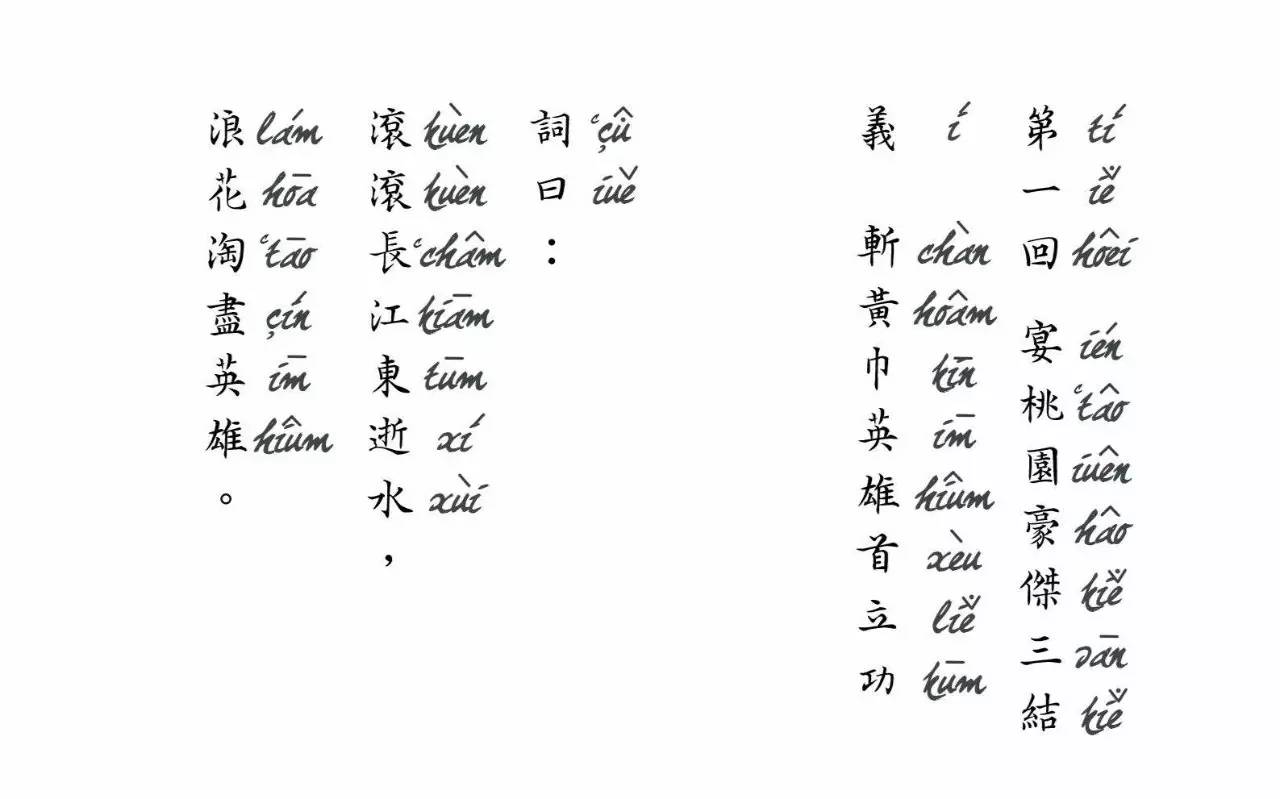 第一回 宴桃園豪傑三結
tí iě̇ hôei ién ʻtâo iuên hâo kiě̇ sān kiě̇
義 斬黃巾英雄首立功
í chàn hoâm kīn īm hiûm xèu liě̇ kūm
詞曰：
ʻçû iuě
滾滾長江東逝水，
kuèn kuèn ʻchâm kiām tūm xí xùi
浪花淘盡英雄。
lám hōa ʻtāo çín īm hiûm